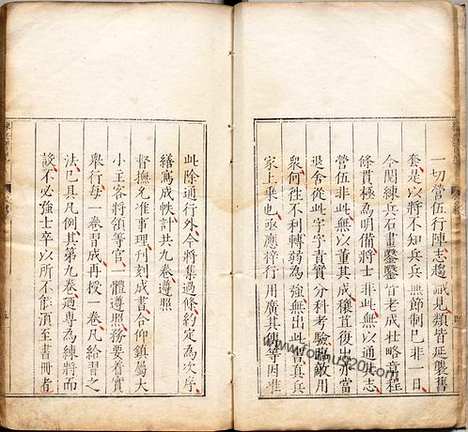 一切營伍行陣志趨識見類皆延襲舊
套是以將不知兵兵無節制已非一日
今閱練兵石畫鑿鑿皆老成壯略章程
條貫極為明備將士非此無以通其志
營伍非此無以董其成穰苴復出亦當
退舍從此字字責實分科考驗臨敵用
眾何往不利轉弱為強無出此書真兵
家上乘也亟應梓行用廣其傳等因准
此除通行外今將集過條約定為次序
繕寫成帙計共九卷遵照
督撫允准事理刊刻成書合仰鎮屬大
小主客將領等官一體遵照務要着實
舉行每一卷習成再授一卷凡給習之
法已具凡例其第九卷迺專為練將而
設不必強士卒以所不能頂至書冊者